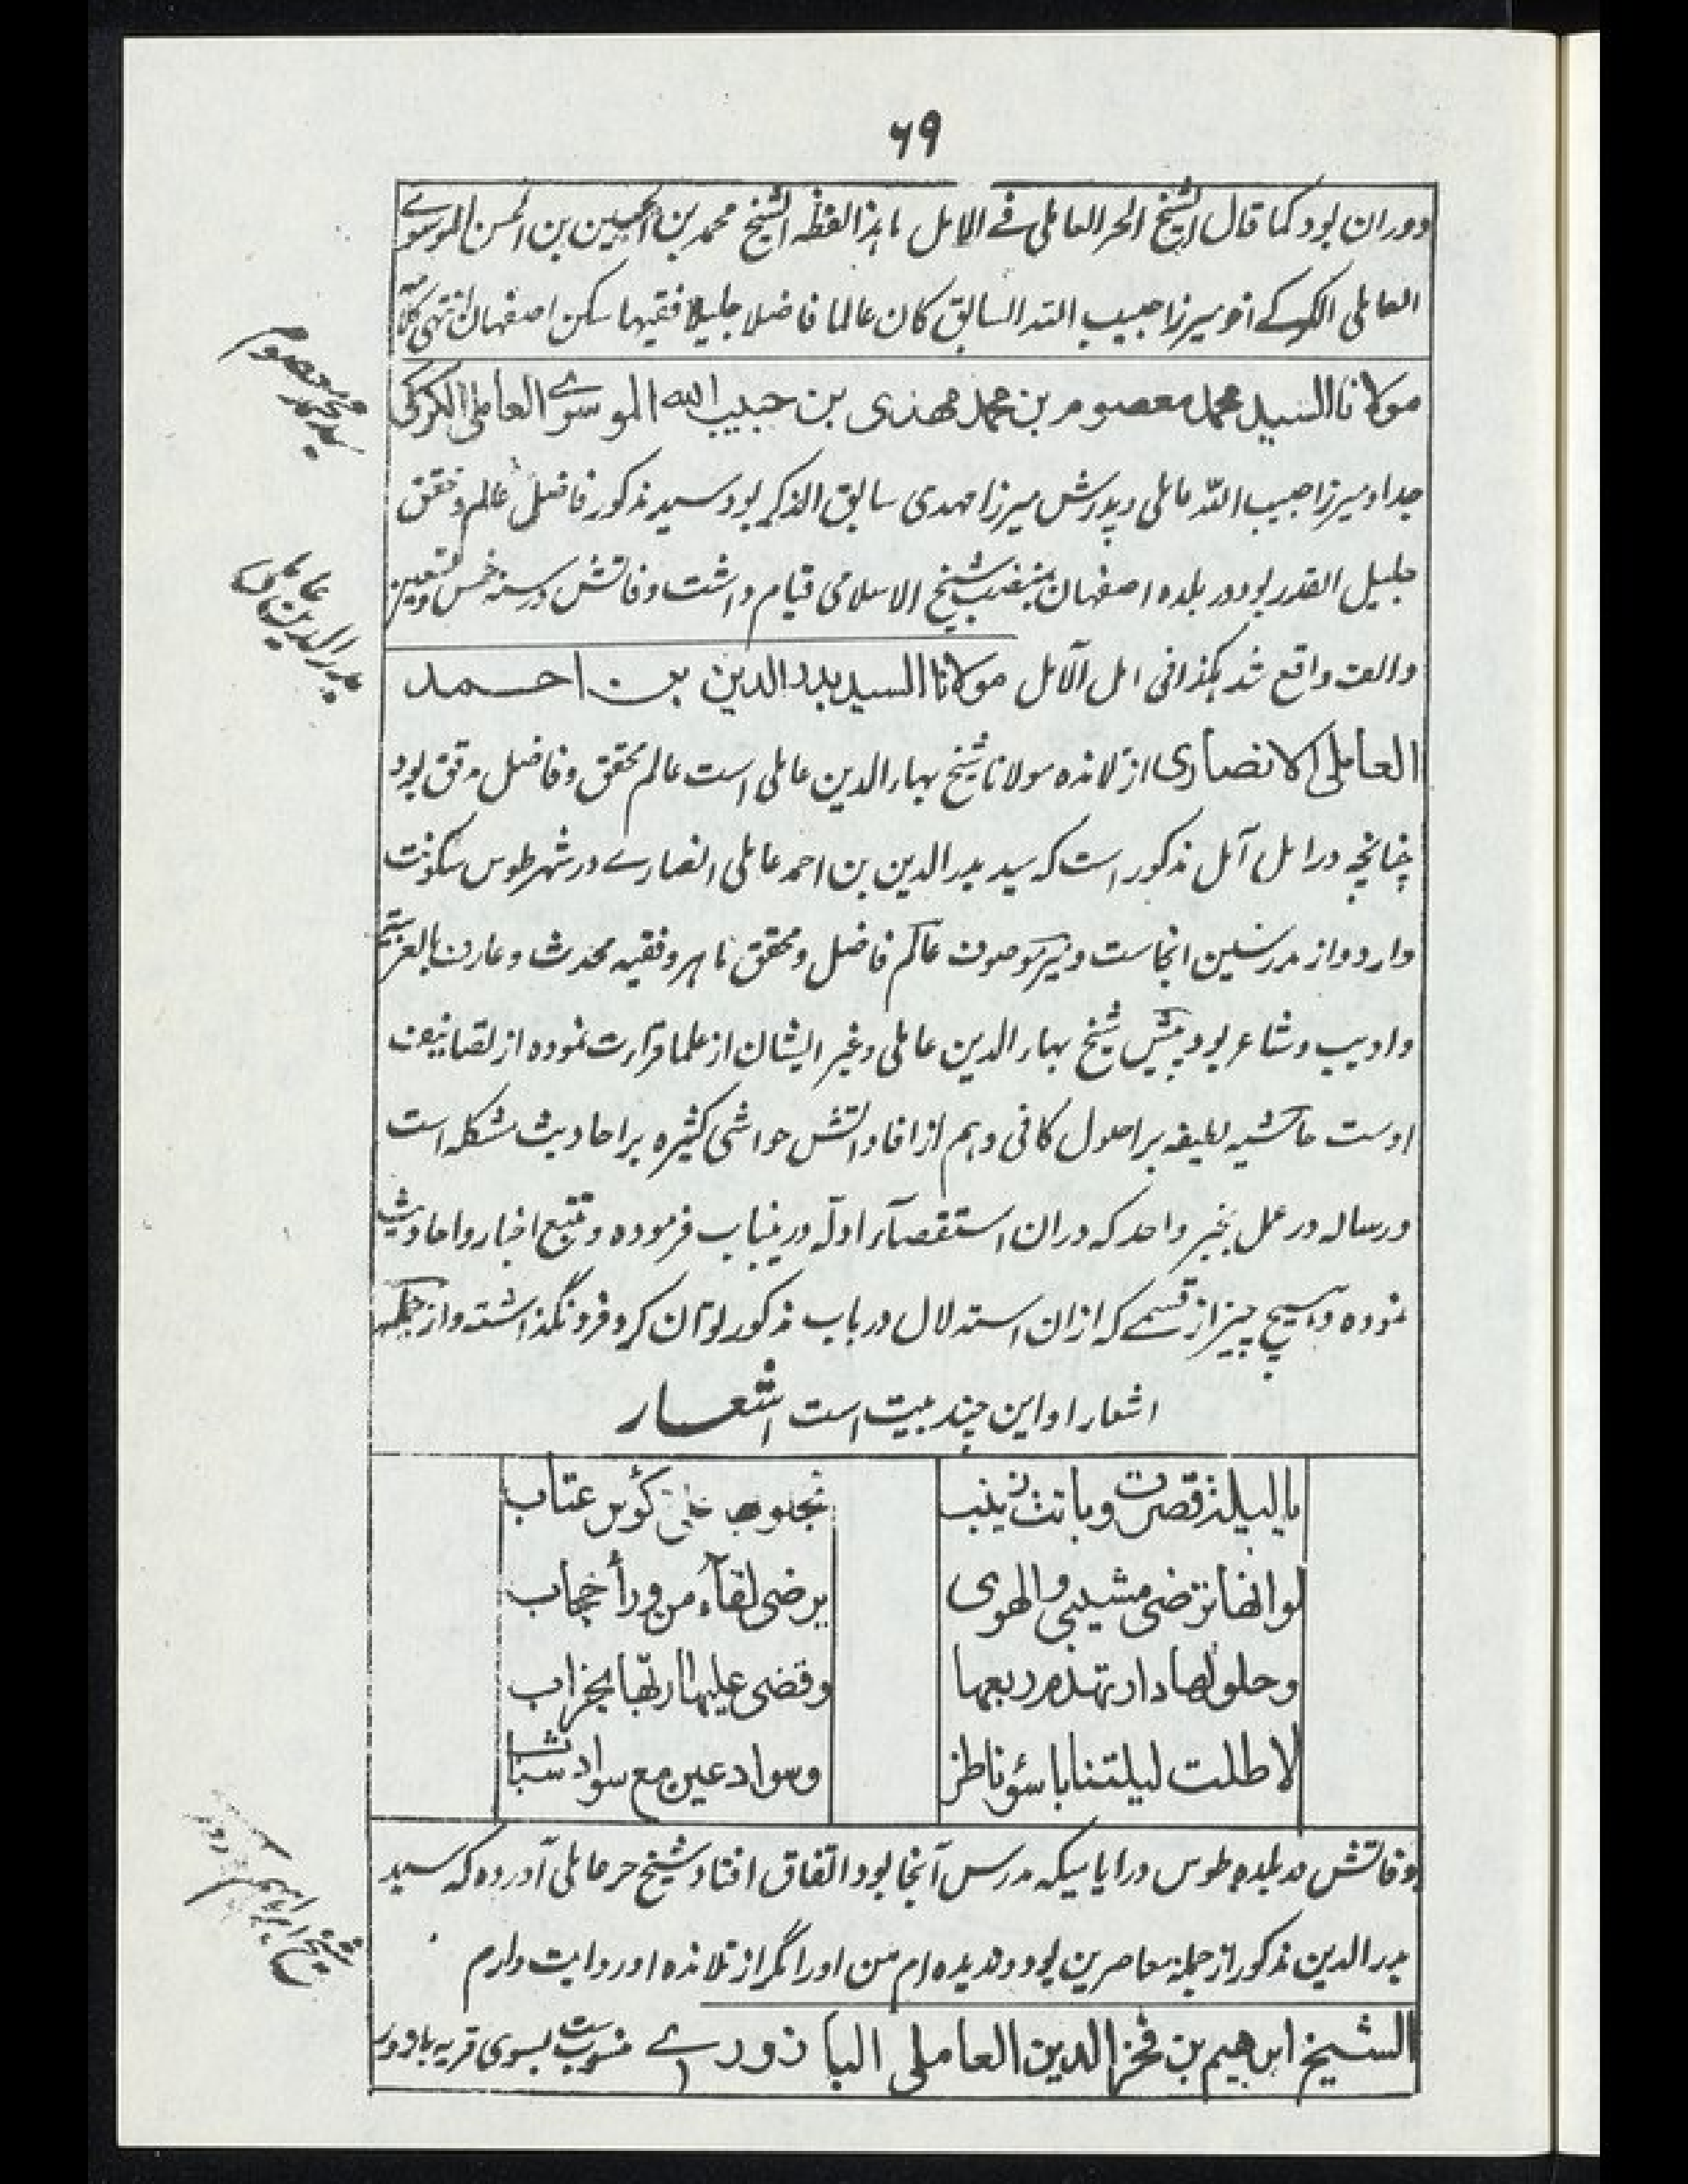 ۶۹
دوران بود کما قال الشیخ الحر العاملی فے الامل ما هذا لفظه الشیخ محمد بن الحسین بن الحسن الموسوے
العاملی الکرکے اخو میرزا حبیب اللہ السابق کان عالما فاضلا جلیلا فقیها سکن اصفهان انتهی کلامه
مولانا السید محمد معصوم بن محمد مهدی بن حبیب الله الموسوے العاملی الکرکی
جد او میرزا حبیب اللّه عاملی و پدرش میرزا مهدی سابق الذکر بود سید مذکور فاضل عالم و محقق
جلیل القدر بود در بلده اصفهان بمنصب شیخ الاسلامی قیام داشت وفاتش در سنه خمس و تسعین
والف واقع شد هکذا فی امل الآمل مولانا السید بدر الدین بن احمد
العاملی الانصاری از تلامذه مولانا شیخ بهاء الدین عاملی است عالم محقق و فاضل مدقق بود
چنانچه در امل آمل مذکور است که سید بدر الدین بن احمد عاملی انصارے در شهر طوس سکونت
دارد و از مدرسین انجاست و نیز موصوف عالم فاضل و محقق ماهر و فقیه محدث و عارف بالعربیته
و ادیب و شاعر بود پیش شیخ بهاء الدین عاملی و غیر ایشان از علما قرآءت نموده از تصانیف
اوست حاشیه لطیفه بر اصول کافی و هم از افاداتش حواشی کثیره بر احادیث مشکله است
و رساله در عمل بخبر واحد که دران استقصآء ادلّه درینباب فرموده و تتبع اخبار و احادیث
نموده و هیچ چیز از قسمے که ازان استدلال در باب مذکور توان کرد فرو نگذاشته و از جمله
اشعار او این چند بیت است اشعار
یا لیلة قصرت و باتت زینب
تجلو علی کؤس عتاب
لو انها ترضی مشیبی والهوی
یرضی لقاء من وراء حجاب
و حلولها دار تهدم ربعها
و قضی علیها ربّها بخراب
لاطلت لیلتنا باسؤ ناظر
و سواد عین مع سواد شباب
وفاتش در بلده طوس در ایامیکه مدرس آنجا بود اتفاق افتاد شیخ حر عاملی آورده که سید
بدر الدین مذکور از جمله معاصرین بود و ندیده ام من او را مگر از تلامذه او روایت دارم
الشیخ ابراهیم بن فخر الدین العاملی البازورے منسوبست بسوی قریه بازور
سید محمد معصوم
بدر الدین عاملی
شیخ ابراهیم